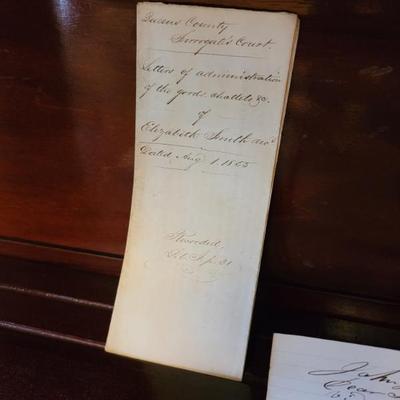 Queens County
Surrogate's Court.
Letters of administration
of the goods chattels &c.
of
Elizabeth Smith dec'd
Dated Aug 1. 1855
Recorded,
John